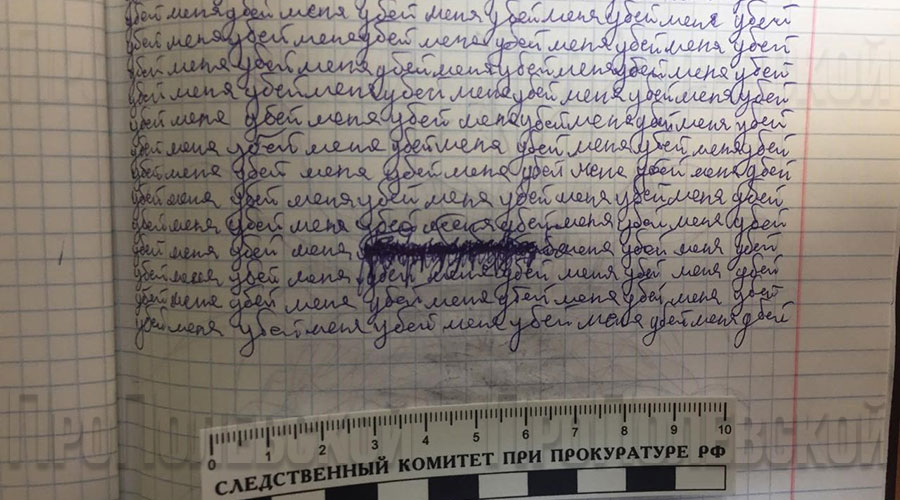 убей меня убей меня убей меня убей меня убей меня убей
убей меня убей меня убей меня убей меня убей меня убей
убей меня убей меня убей меня убей меня убей меня убей
убей меня убей меня убей меня убей меня убей меня убей
убей меня убей меня убей меня убей меня убей меня убей
убей меня убей меня убей меня убей меня убей меня убей
убей меня убей меня убей меня убей меня убей меня убей
убей меня убей меня убей меня убей меня убей меня убей
убей меня убей меня убей меня убей меня убей меня убей
убей меня убей меня меня убей меня убей
убей меня убей меня убей меня убей меня убей меня убей
убей меня убей меня убей меня убей меня убей меня убей
убей меня убей меня убей меня убей меня убей меня убей
ПроПолевской ПроПолевской
0 1 2 3 4 5 6 7 8 9 10
СЛЕДСТВЕННЫЙ КОМИТЕТ ПРИ ПРОКУРАТУРЕ РФ